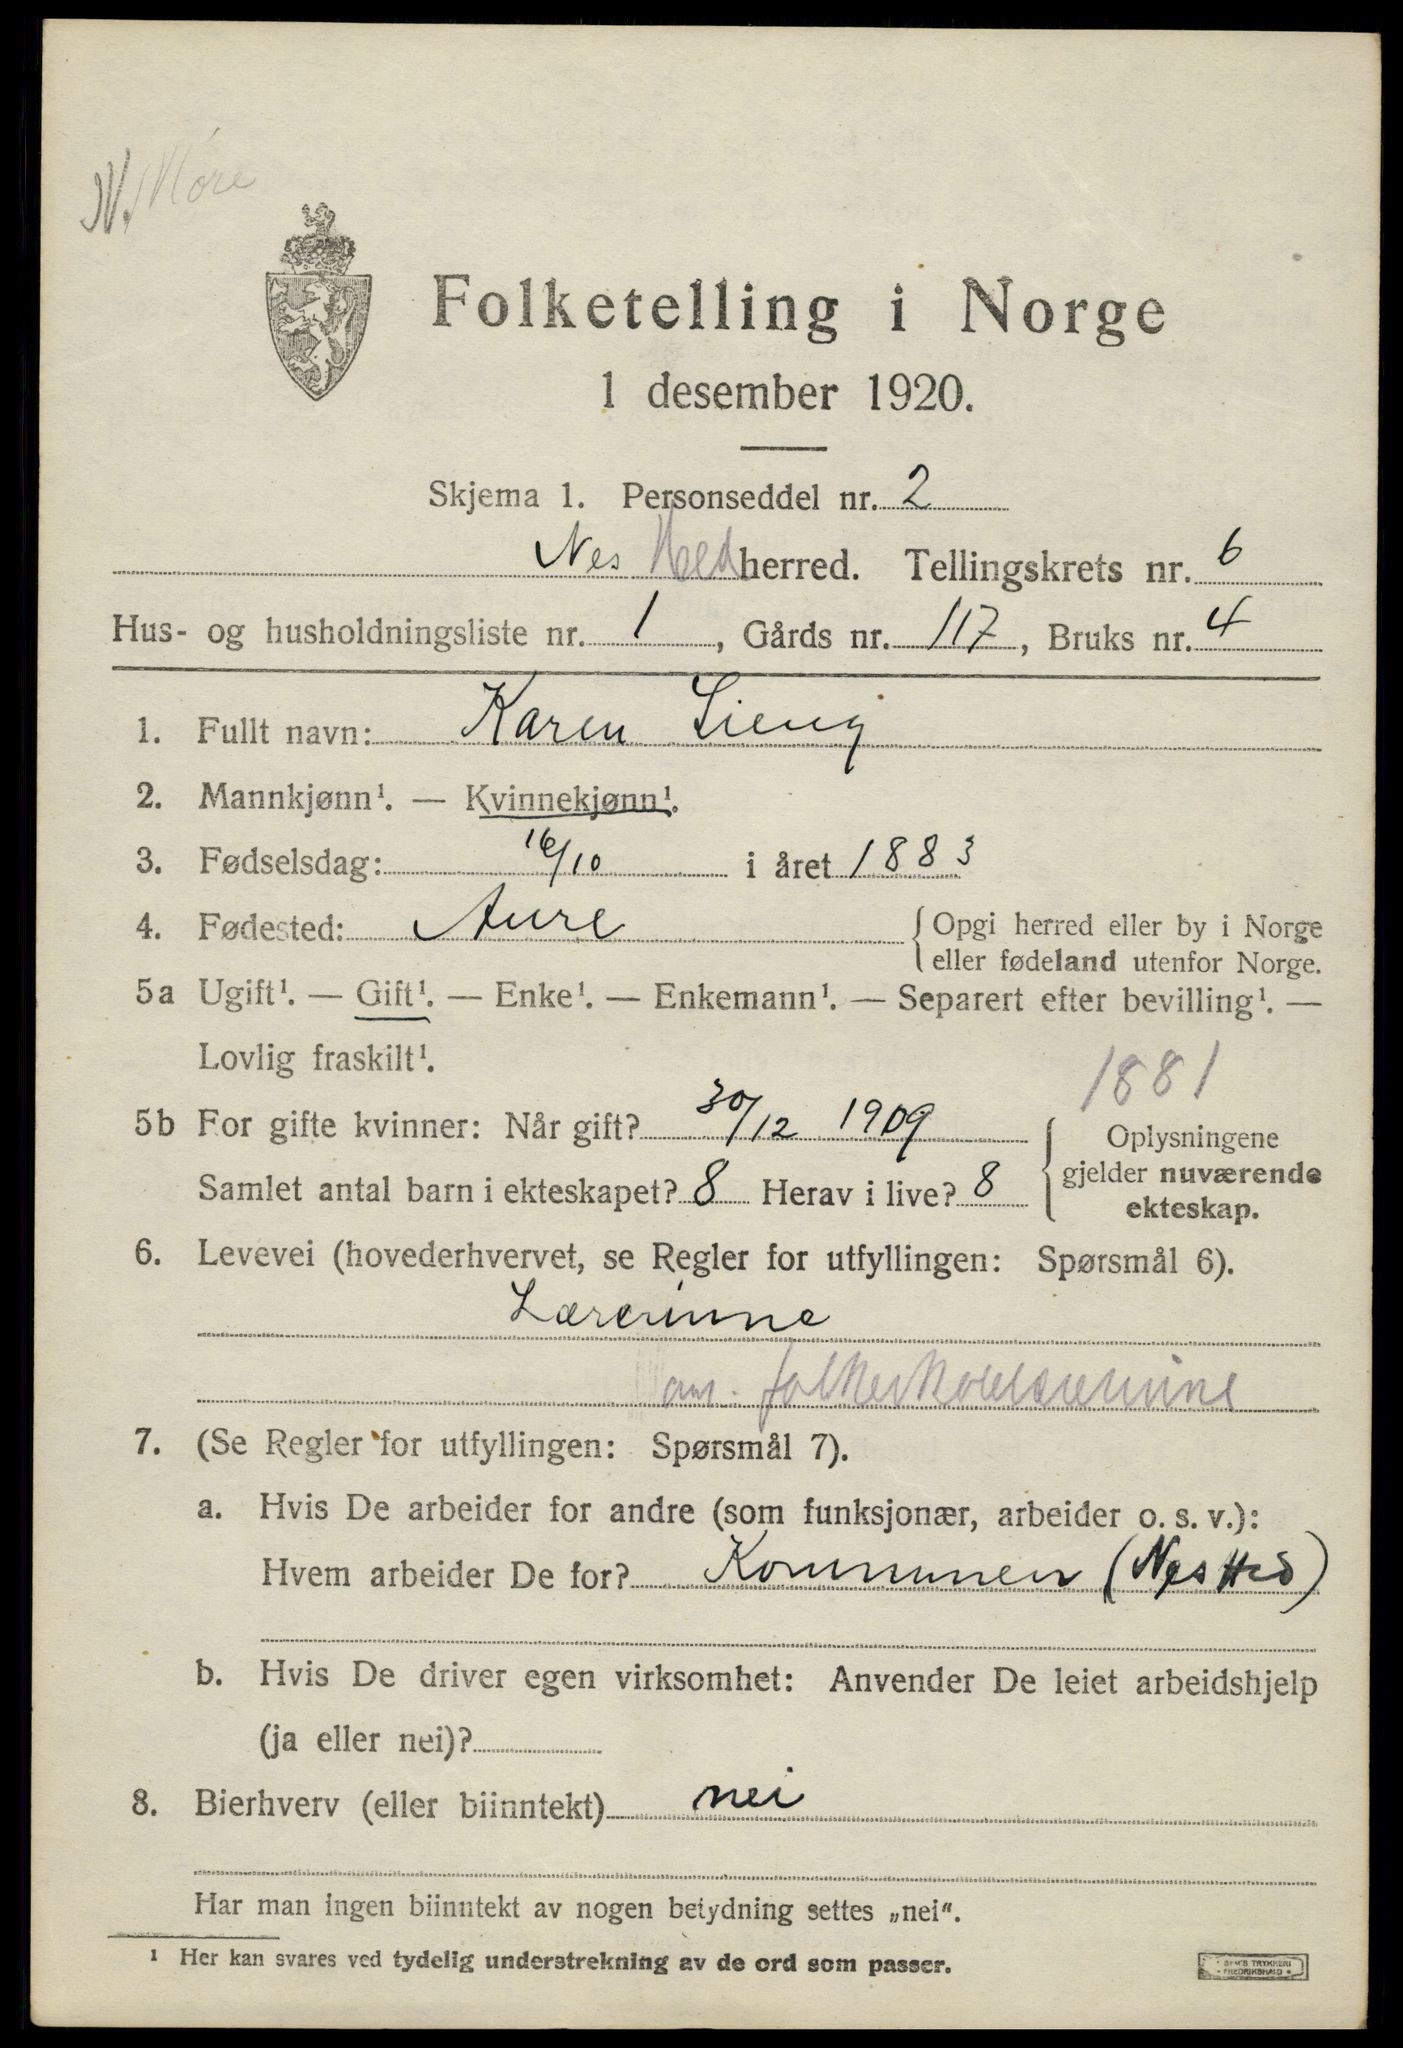 N. Møre
Folketelling i Norge
1 desember 1920.
Skjema 1. Personseddel nr. 2
Nes Hed herred. Tellingskrets nr. 6
Hus- og husholdningsliste nr. 1, Gårds nr. 117, Bruks nr. 4
1. Fullt navn: Karen Lieng
2. Mannkjønn¹. — Kvinnekjønn¹.
3. Fødselsdag: 16/10 i året 1883
4. Fødested: Aure { Opgi herred eller by i Norge
eller fødeland utenfor Norge.
5a Ugift¹. — Gift¹. — Enke¹. — Enkemann¹. — Separert efter bevilling¹. —
Lovlig fraskilt¹.
1881
5b For gifte kvinner: Når gift? 30/12 1909
Samlet antal barn i ekteskapet? 8 Herav i live? 8
{ Oplysningene
gjelder nuværende
ekteskap.
6. Levevei (hovederhvervet, se Regler for utfyllingen: Spørsmål 6).
Lærerinne
folkeskolelærerinne
7. (Se Regler for utfyllingen: Spørsmål 7).
a. Hvis De arbeider for andre (som funksjonær, arbeider o. s. v.):
Hvem arbeider De for? Kommunen (Nes Hed)
b. Hvis De driver egen virksomhet: Anvender De leiet arbeidshjelp
(ja eller nei)?
8. Bierhverv (eller biinntekt) nei
Har man ingen biinntekt av nogen betydning settes „nei“.
¹ Her kan svares ved tydelig understrekning av de ord som passer.
SEM'S TRYKKERI
• FREDRIKSHALD •